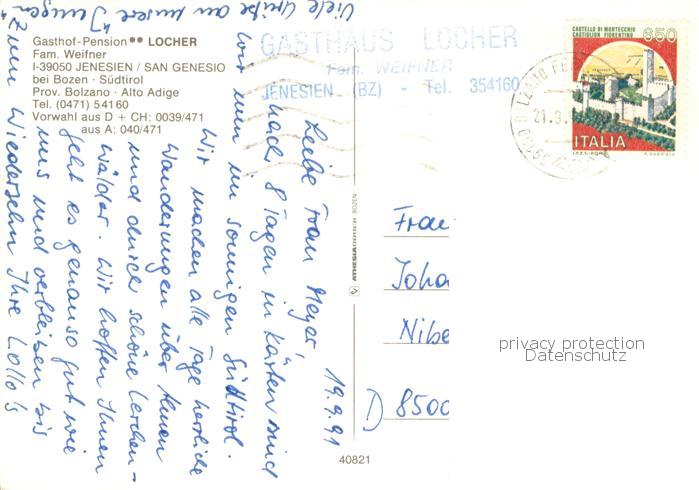 Gasthof-Pension ** LOCHER
Fam. Weifner
I-39050 JENESIEN / SAN GENESIO
bei Bozen · Südtirol
Prov. Bolzano · Alto Adige
Tel. (0471) 54160
Vorwahl aus D + CH: 0039/471
aus A: 040/471
GASTHAUS LOCHER
Fam. WEIFNER
JENESIEN (BZ) - Tel. 354160
CASTELLO DI MONTECCHIO
CASTIGLION FIORENTINO
650
ITALIA
21.9.
19.9.91
Liebe Frau Meyer,
nach 8 Tagen in Kärnten sind
wir nun im sonnigen Südtirol.
Wir machen alle Tage herrliche
Wanderungen über Almen
und durch schöne Lerchen-
wälder. Wir hoffen Ihnen
geht es genauso gut wie
uns und verbleiben bis
zum Wiedersehn Ihre Lollo's
Viele Grüße an unsere "Jungen"
ATHESIA
BOZEN
40821
Frau
Joha
Nibe
D 8500
privacy protection
Datenschutz